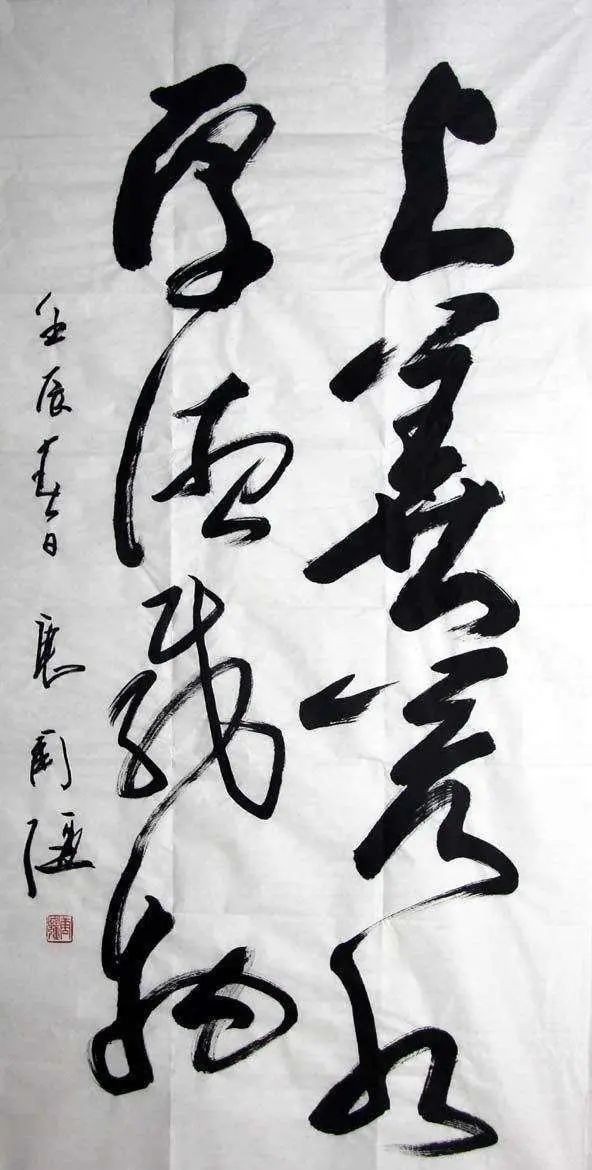 上善若水
厚德载物
壬辰春日